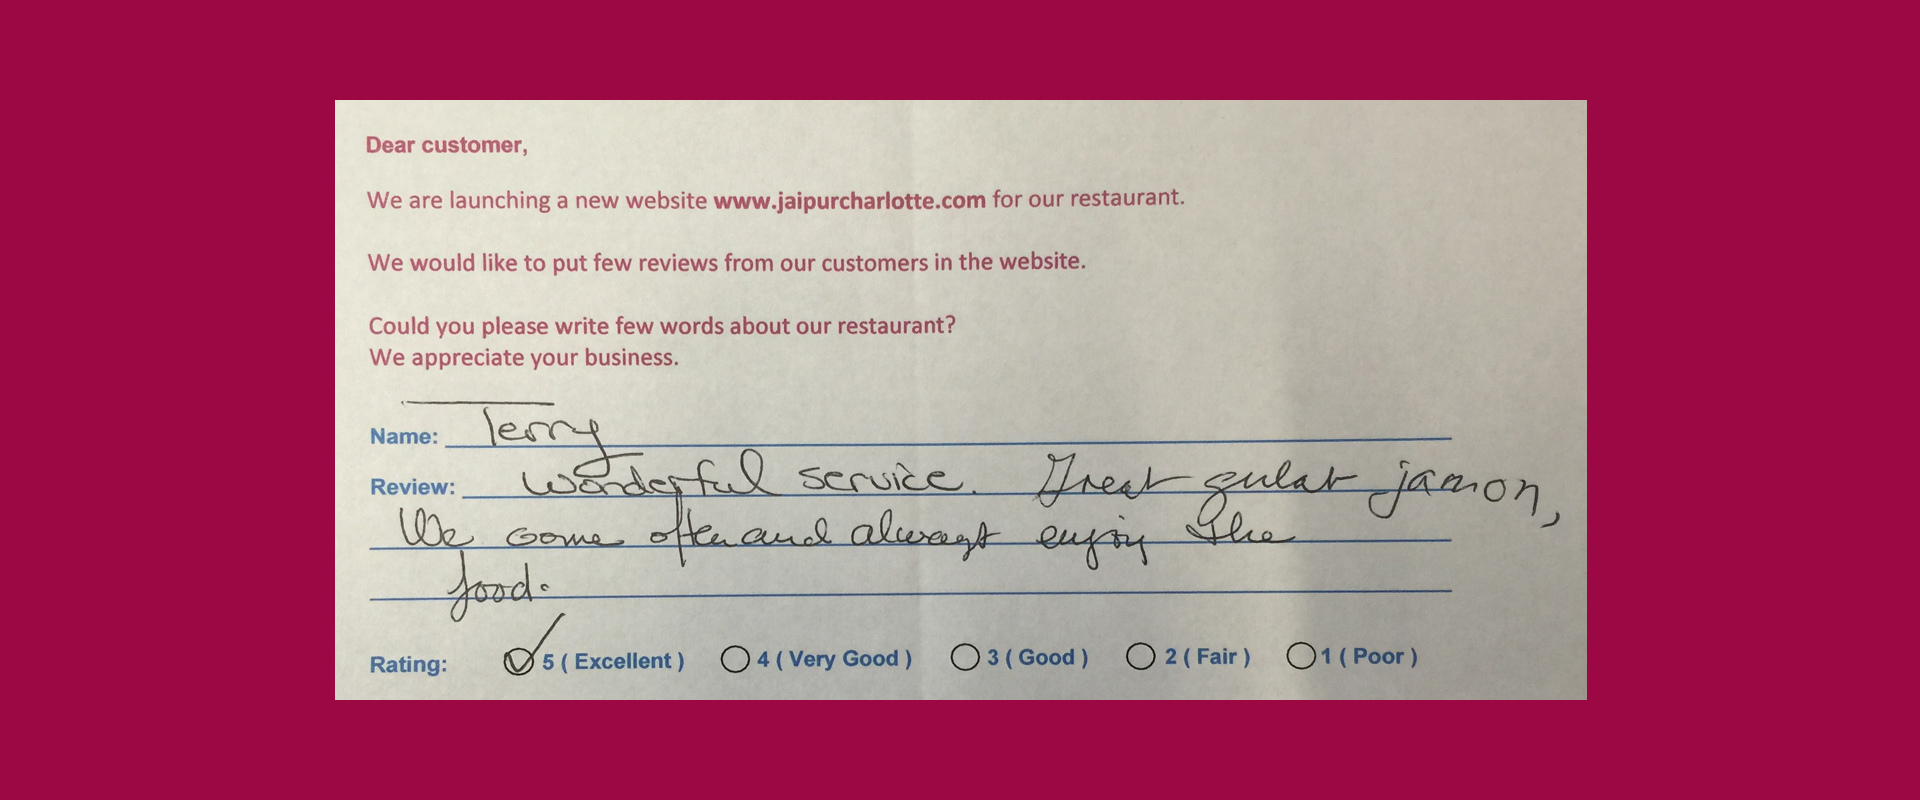 Dear customer,
We are launching a new website www.jaipurcharlotte.com for our restaurant.
We would like to put few reviews from our customers in the website.
Could you please write few words about our restaurant?
We appreciate your business.
Name: Terry
Review: Wonderful service. Great gulab jamon,
We come often and always enjoy the
food.
Rating: 5 ( Excellent ) 4 ( Very Good ) 3 ( Good ) 2 ( Fair ) 1 ( Poor )